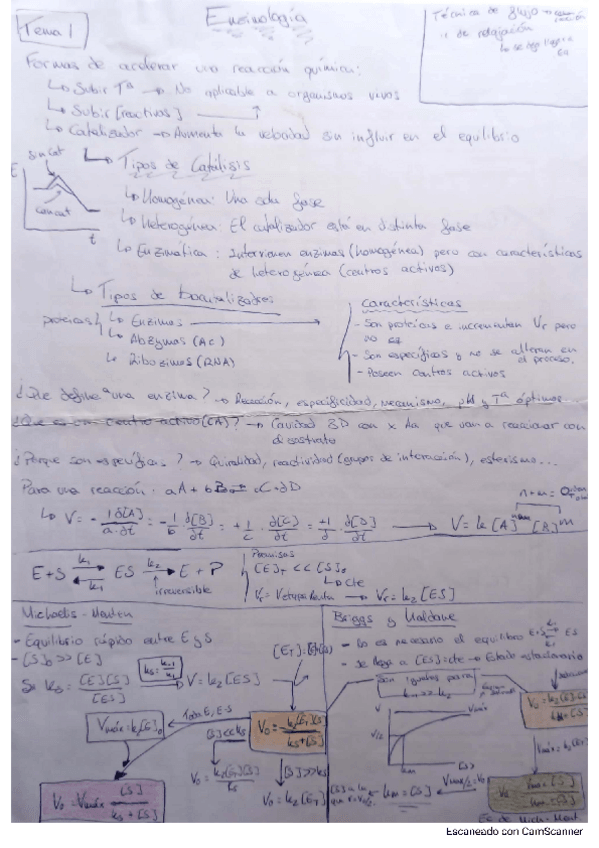 Tema 1
Enzimología
Técnica de flujo →
" de relajación
Formas de acelerar una reacción química:
↳ Subir Tª → No aplicable a organismos vivos
↳ Subir [reactivos]
↳ Catalizador → Aumenta la velocidad sin influir en el equilibrio
sin cat
E
con cat
t
↳ Tipos de Catálisis
↳ Homogénea: Una sola fase
↳ Heterogénea: El catalizador está en distinta fase
↳ Enzimática: Intervienen enzimas (homogénea) pero con características
de heterogénea (centros activos)
↳ Tipos de biocatalizadores
proteicas
↳ Enzimas
↳ Abzymas (Ac)
↳ Ribozimas (RNA)
Características
- Son proteicas e incrementan Vr pero
no
- Son específicas y no se alteran en
el proceso.
- Poseen centros activos
¿Que define a una enzima? → Reacción, especificidad, mecanismo, pH y Tª óptimos
¿Que es un centro activo (CA)? → Cavidad 3D con x Aa que van a reaccionar con
el sustrato
¿Porque son específicas? → Quiralidad, reactividad (grupos de interacción), esterismo...
Para una reacción: aA + bB → cC + dD
↳ V = - 1/a ∂[A]/∂t = - 1/b ∂[B]/∂t = + 1/c · ∂[C]/∂t = + 1/d · ∂[D]/∂t → V = k [A]ⁿ [B]ᵐ
n + m =
E + S ⇌ ES → E + P
k₁
k₋₁
k₂
irreversible
Premisas
[E]T << [S]₀
↳ cte
Vr = Vetapa lenta → Vr = k₂ [ES]
Michaelis - Menten
- Equilibrio rápido entre E y S
- [S]₀ >> [E]
Si ks = [E][S]/[ES]
ks = k₋₁/k₁
V = k₂ [ES]
Vmáx = k₂[E]₀
V₀ = k₂[E][S]/ks + [S]
[S] << ks
V₀ = k₂[ET][S]/ks
[S] >> ks
V₀ = k₂ [ET]
V₀ = Vmáx [S]/ks + [S]
Briggs y Haldane
- No es necesario el equilibrio E + S ⇌ ES
- Se llega a [ES] = cte → Estado estacionario
Son iguales para
k₋₁ >> k₂
V
Vmáx
V/2
km
[S]
km = [S]
Vmáx/2 = V₀
Ec de Mich-Ment.
Escaneado con CamScanner